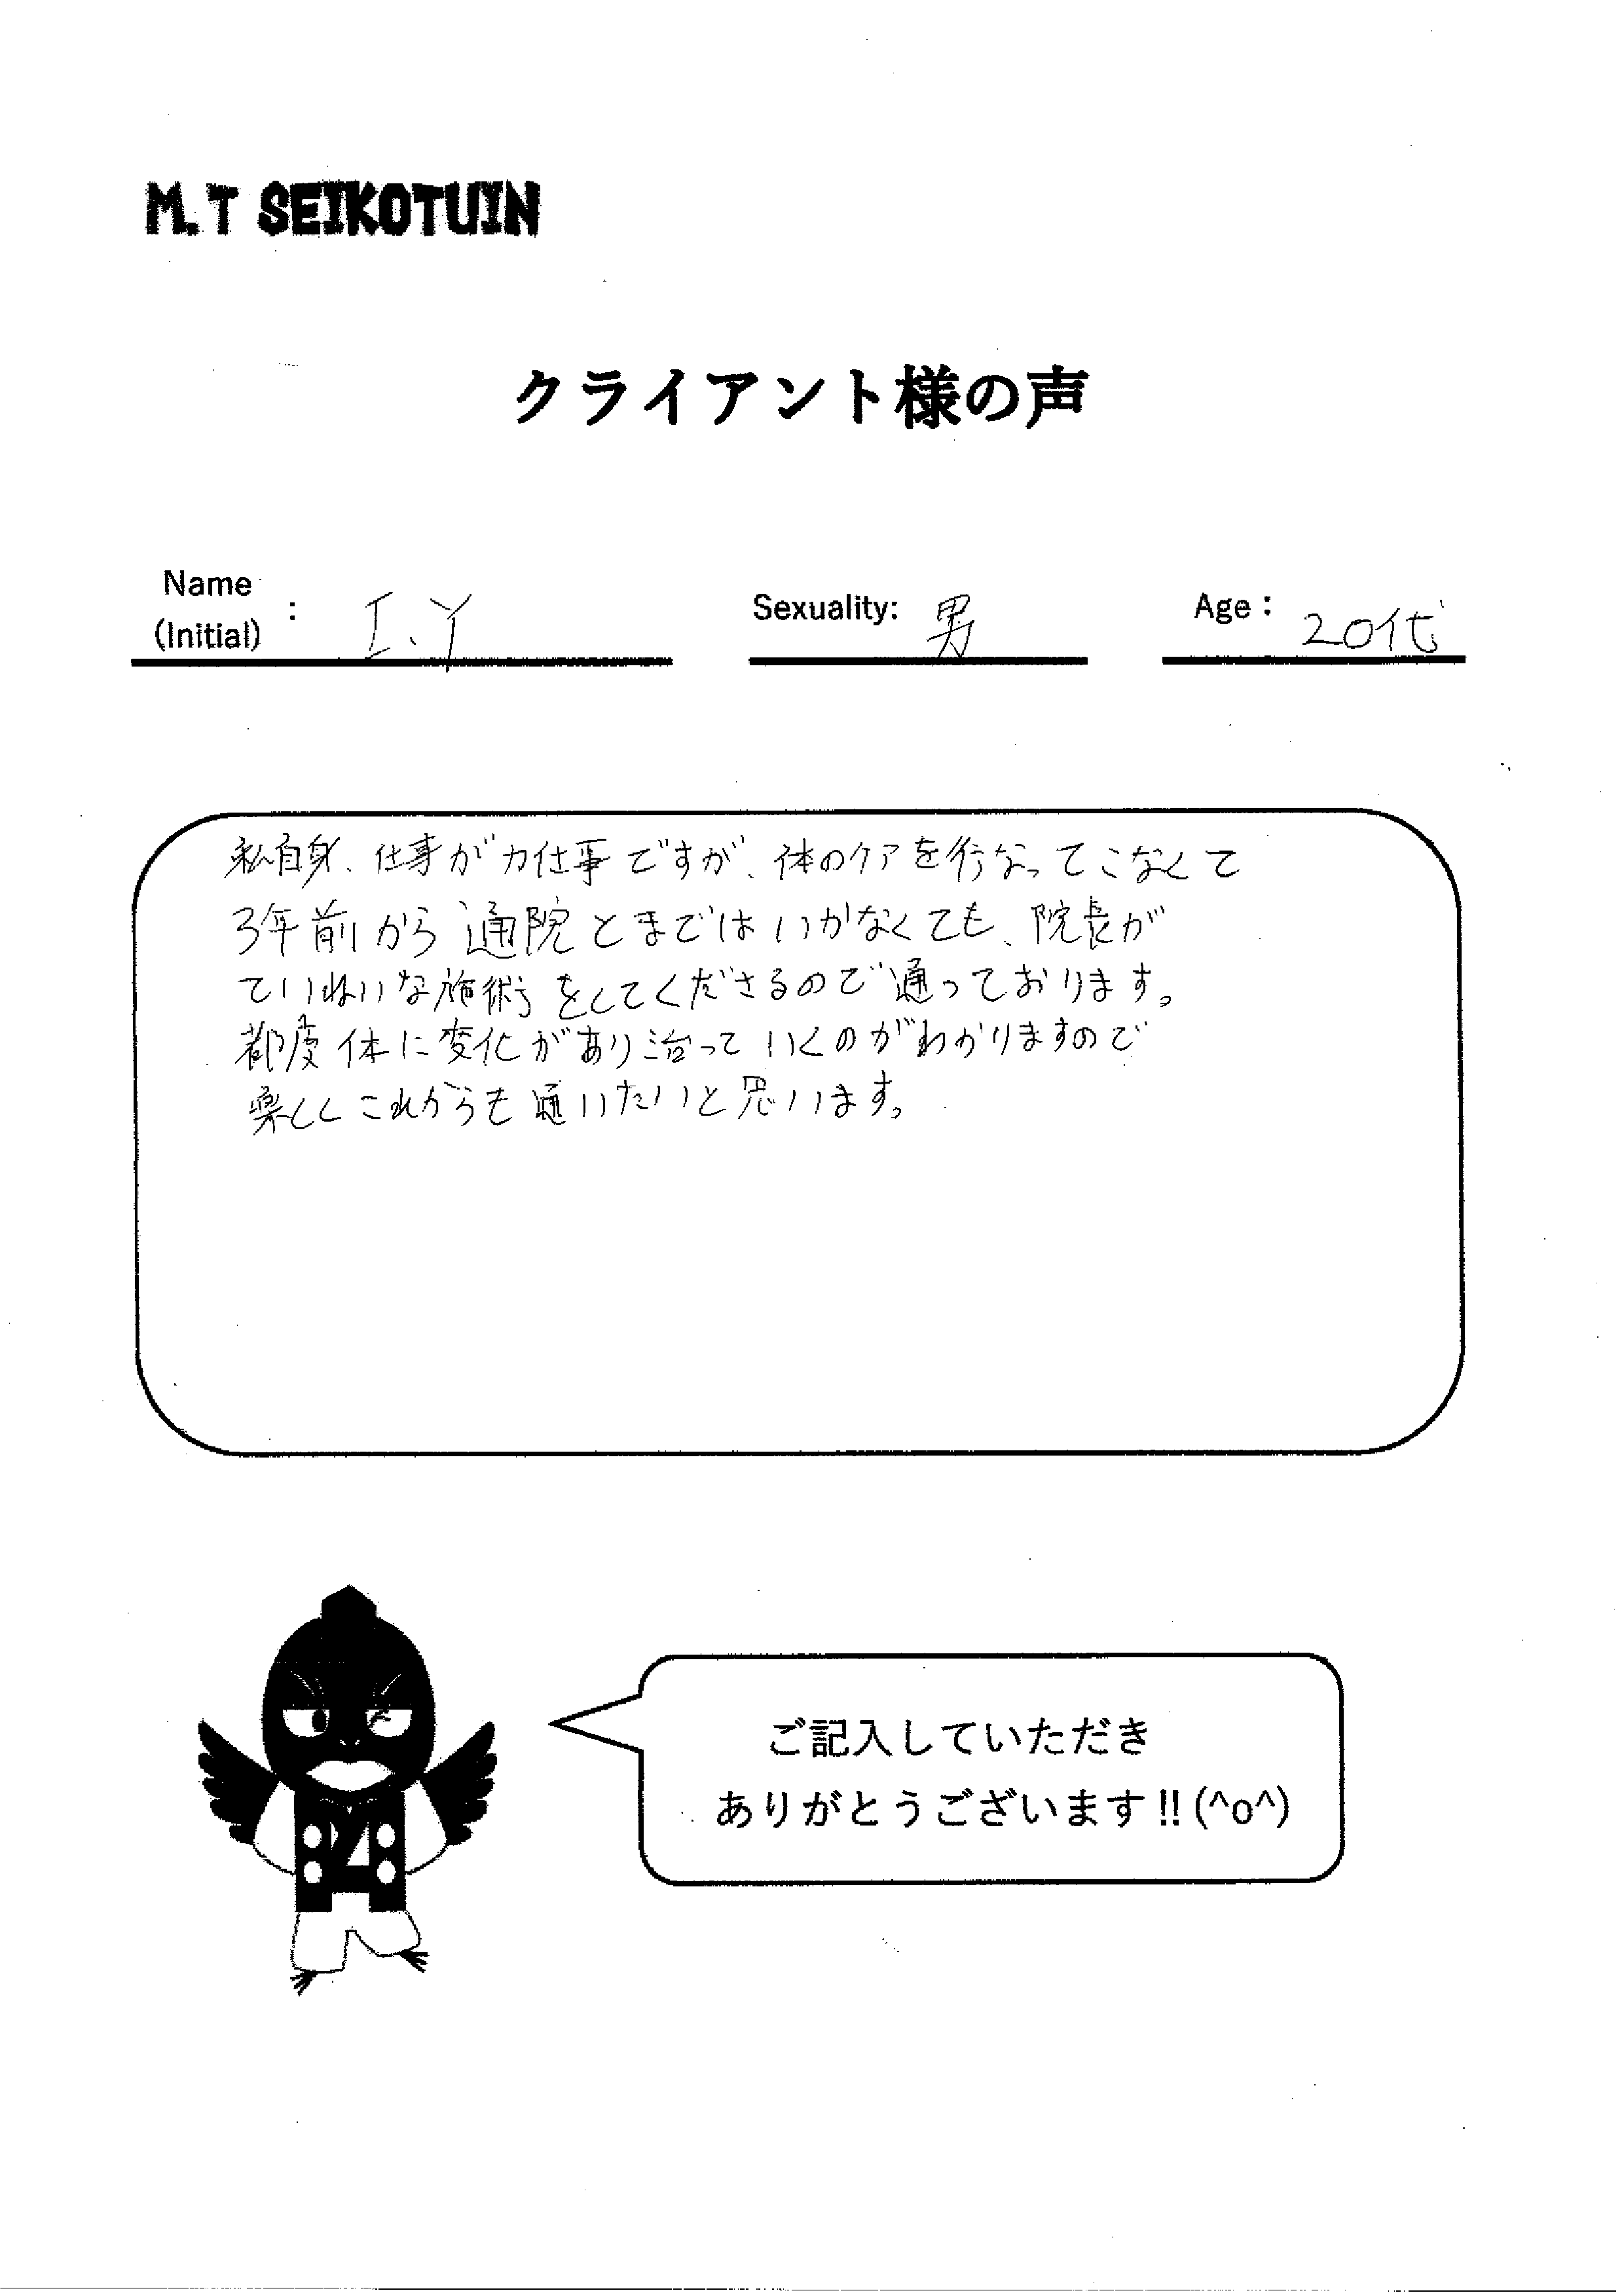 M.T SEIKOTUIN
クライアント様の声
Name
(Initial) : I.Y
Sexuality: 男
Age: 20代
私自身、仕事が力仕事ですが、体のケアを行なってこなくて
3年前から通院とまではいかなくても、院長が
ていねいな施術をしてくださるので通っております。
都度体に変化があり治っていくのがわかりますので
楽しくこれからも通いたいと思います。
ご記入していただき
ありがとうございます!!(^o^)